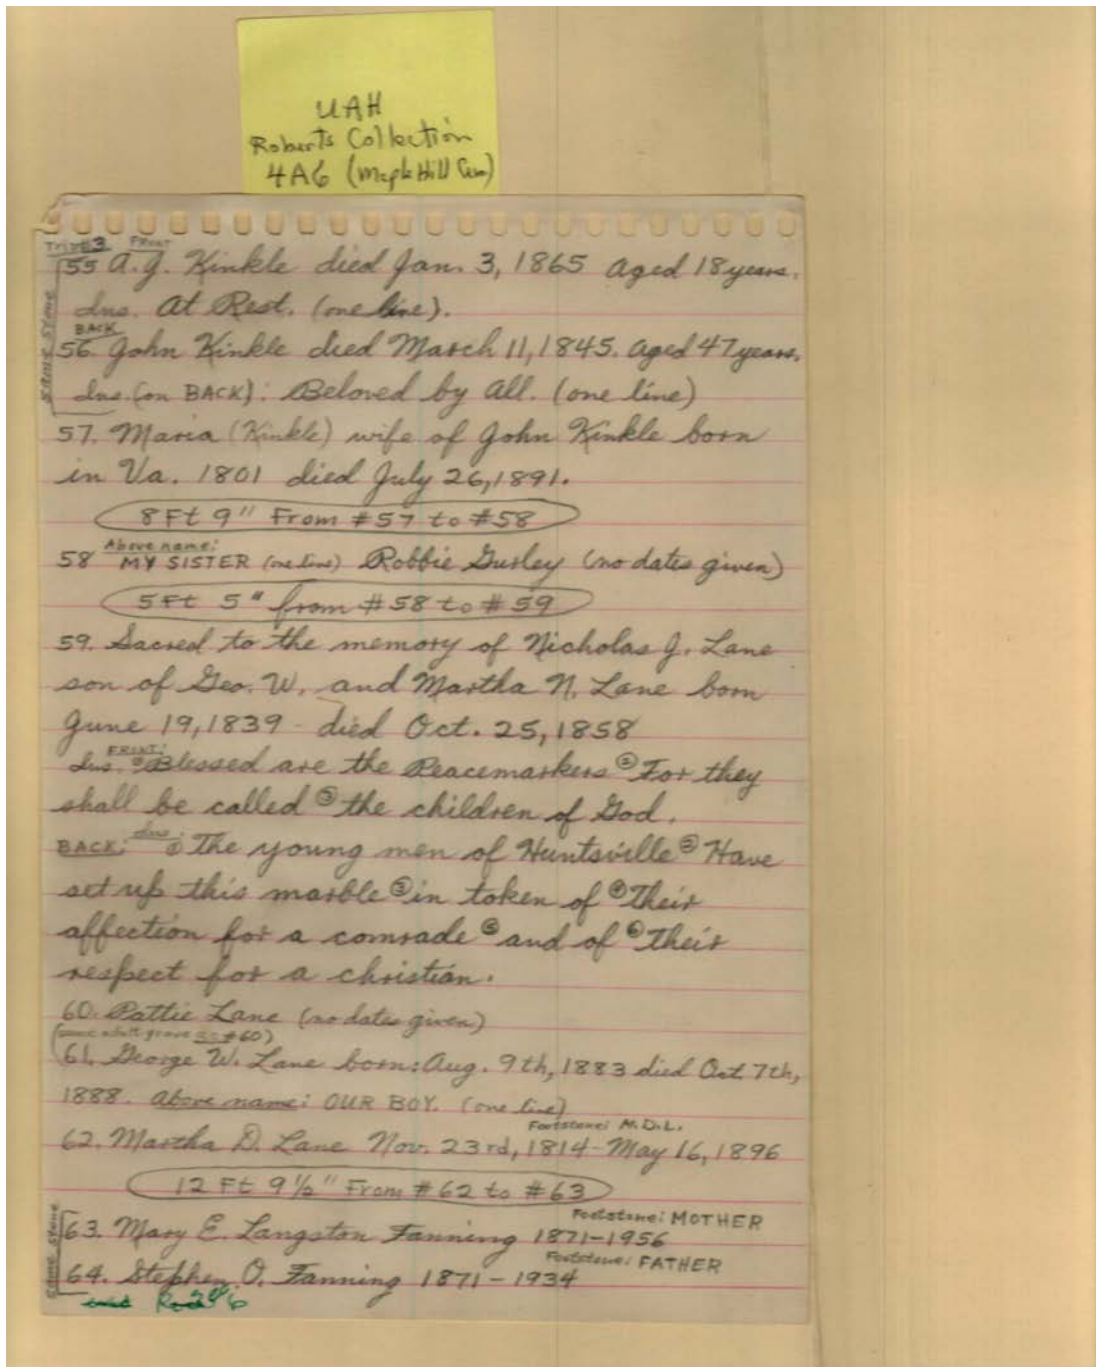 UAH
Roberts Collection
4A6 (Maple Hill Cem)
Trip #3 FRONT
55 A. J. Kinkle died Jan. 3, 1865 Aged 18 years.
Ins. At Rest. (one line).
SAME STONE
BACK
56. John Kinkle died March 11, 1845. Aged 47 years.
Ins. (on BACK): Beloved by All. (one line)
57. Maria (Kinkle) wife of John Kinkle born
in Va. 1801 died July 26, 1891.
8 Ft 9" From #57 to #58
Above name:
58 MY SISTER (one line) Robbie Gurley (no dates given)
5 Ft 5" from #58 to #59
59. Sacred to the memory of Nicholas J. Lane
son of Geo. W. and Martha N. Lane born
June 19, 1839 - died Oct. 25, 1858
FRONT:
Ins. ① Blessed are the Peacemarkers ② For they
shall be called ③ the children of God.
BACK: Ins: ① The young men of Huntsville ② Have
set up this marble ③ in token of ④ Their
affection for a comrade ⑤ and of ⑥ Their
respect for a christian.
60. Pattie Lane (no dates given)
61. George W. Lane born: Aug. 9th, 1883 died Oct 7th,
1888. Above name: OUR BOY. (one line)
Footstone: M.D.L.
62. Martha D. Lane Nov. 23rd, 1814 - May 16, 1896
12 Ft 9½" From #62 to #63
Footstone: MOTHER
63. Mary E. Langston Fanning 1871-1956
SAME STONE
Footstone: FATHER
64. Stephen O. Fanning 1871 - 1934